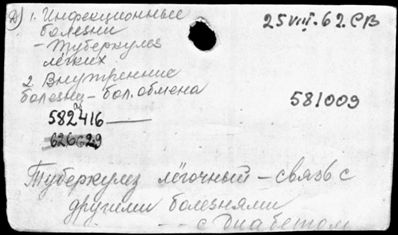 1. Инфекционные
болезни
- Туберкулез
лёгких
2. Внутренние
болезни - бол. обмена
582416
626629
25 VIII. 62. СВ
581009
Туберкулез лёгочный - связь с
другими болезнями
-- с Диабетом